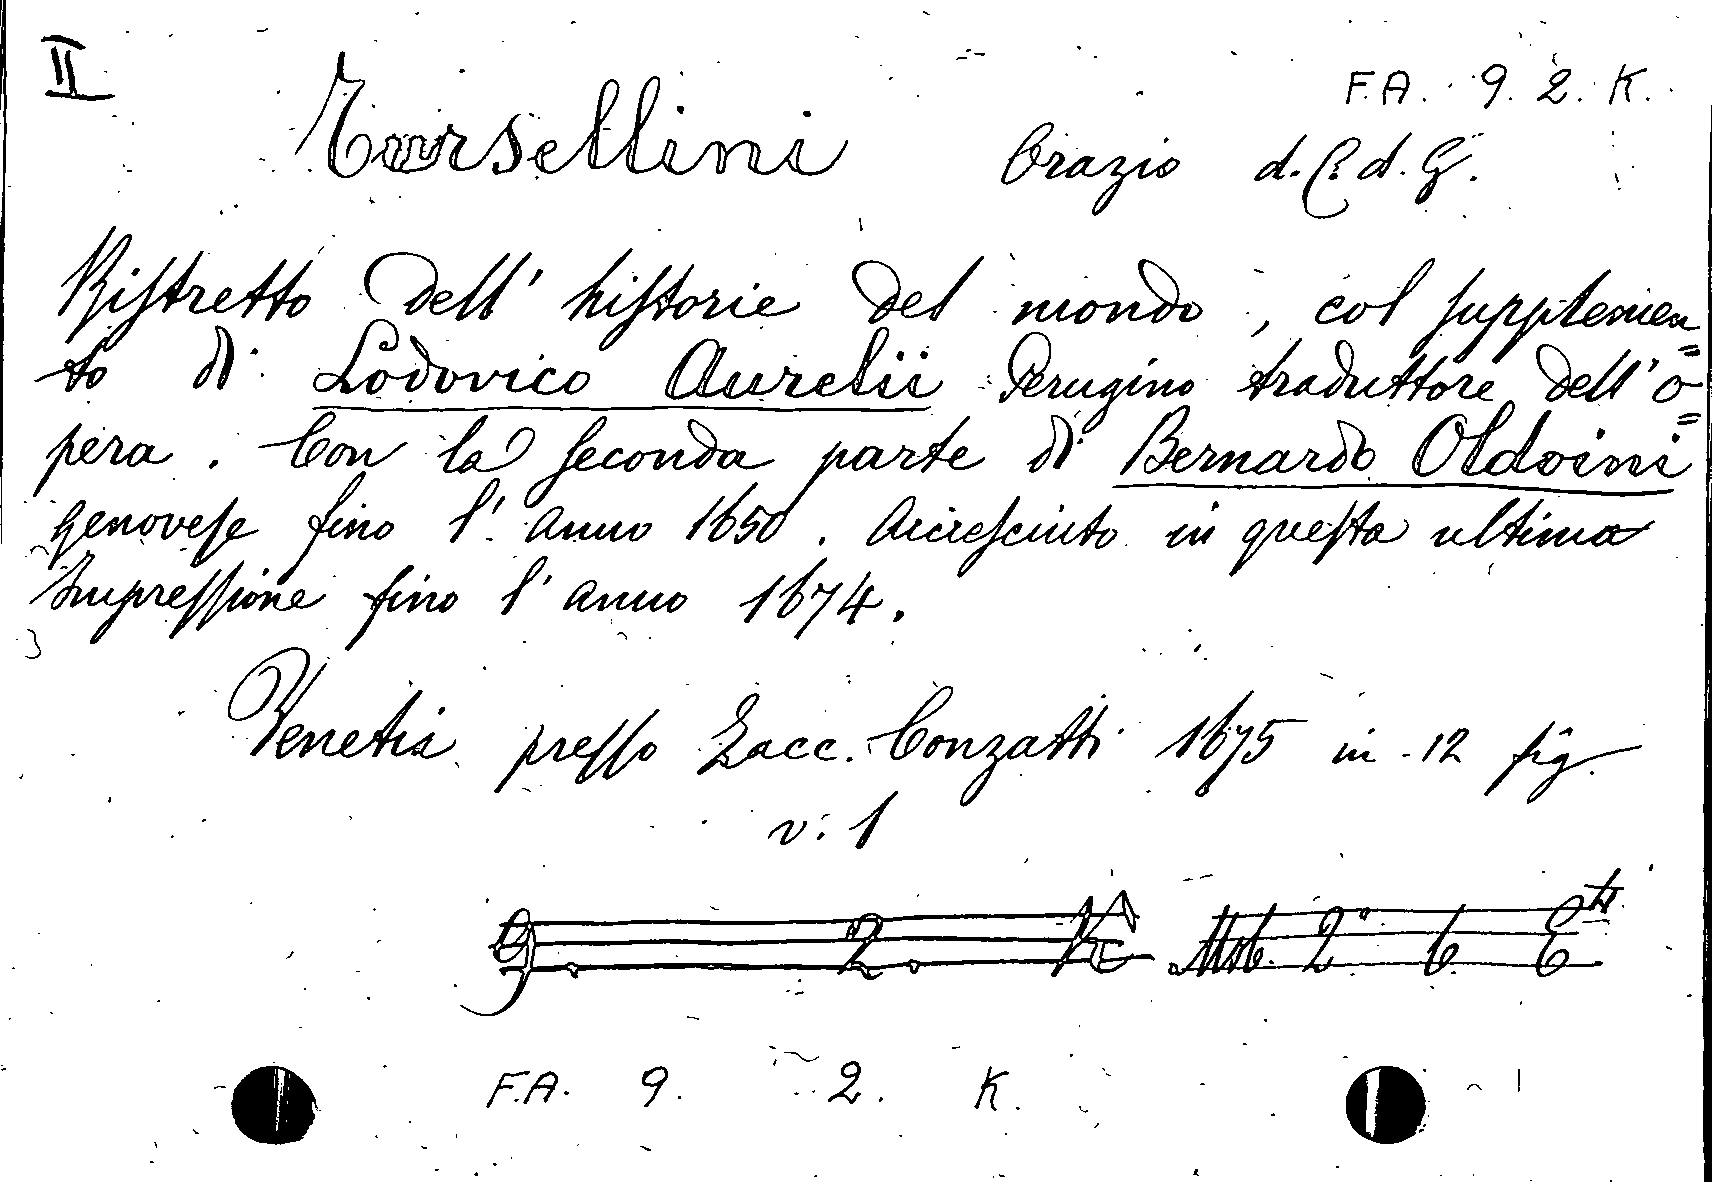 II
F.A. 9. 2. K.
Tursellini Orazio d. C. d. G.
Ristretto dell' historie del mondo, col supplemen=
to di Lodovico Aurelii Perugino traduttore dell'o=
pera. Con la seconda parte di Bernardo Oldoini
genovese fino l'anno 1650. Accresciuto in questa ultima
Impressione fino l'anno 1674.
Venetia presso Zacc. Conzatti 1675 in-12 fig.
v. 1
9. 2. K 2° 6 E
F.A. 9. 2. K.